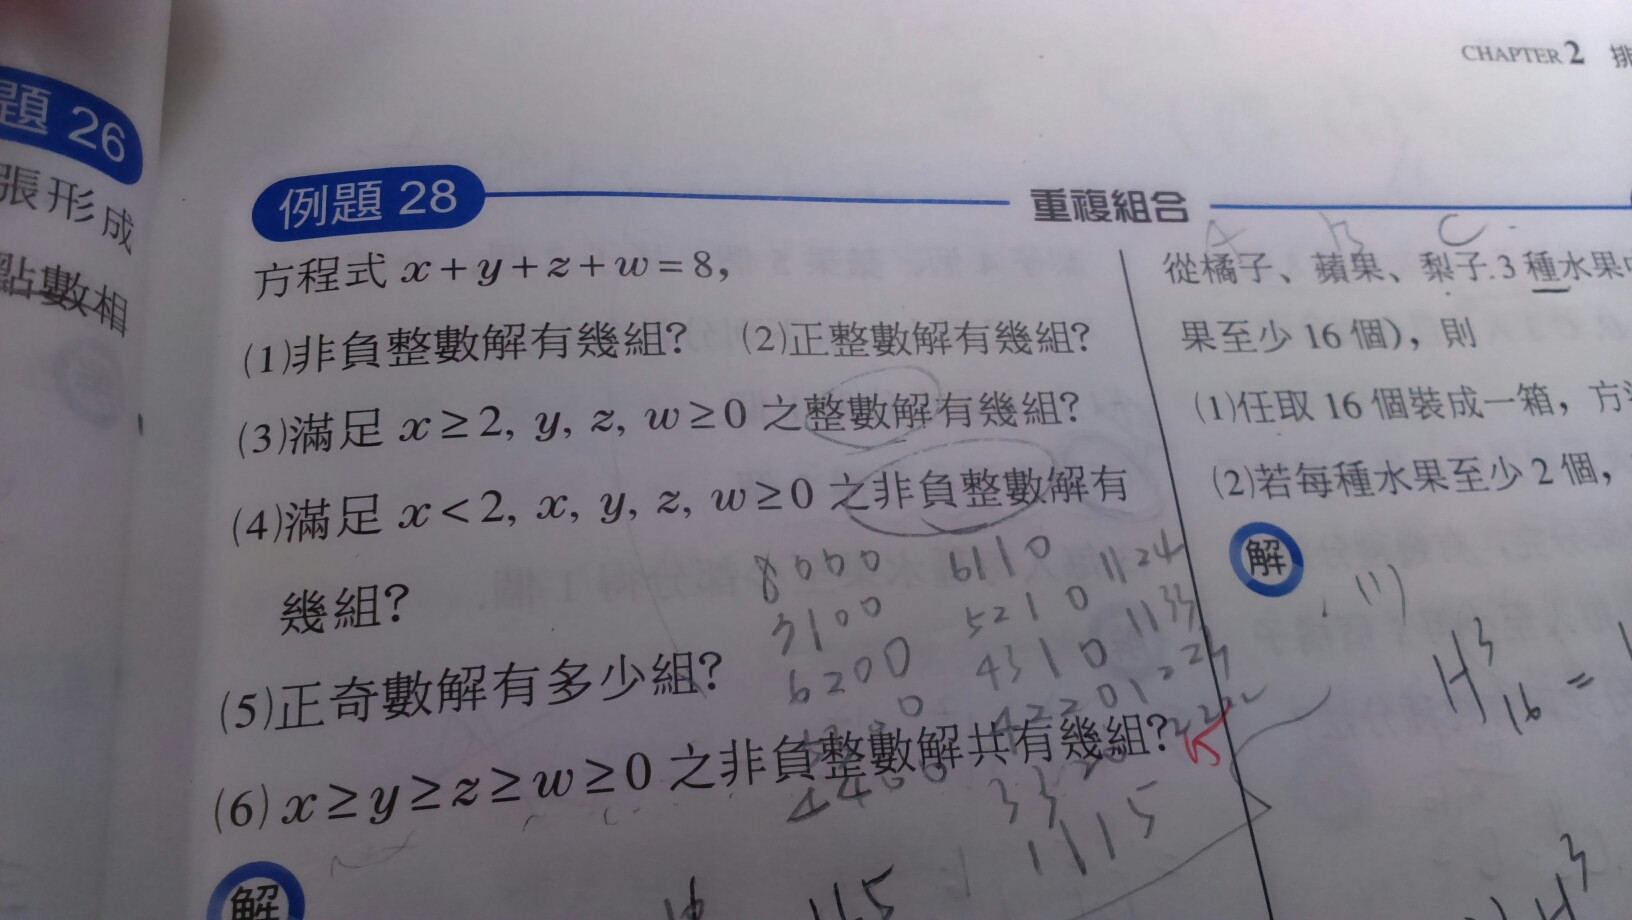 CHAPTER 2 排
題 26
張形成
點數相
例題 28
重複組合
方程式 x+y+z+w=8,
(1)非負整數解有幾組? (2)正整數解有幾組?
(3)滿足 x≥2, y, z, w≥0 之整數解有幾組?
(4)滿足 x<2, x, y, z, w≥0 之非負整數解有
幾組?
8000 6110 1124
5210 1133
6200 4310
(5)正奇數解有多少組?
4220
(6) x≥y≥z≥w≥0 之非負整數解共有幾組?
4400
1115
解
A B C
從橘子、蘋果、梨子.3 種水果
果至少 16 個), 則
(1)任取 16 個裝成一箱, 方
(2)若每種水果至少 2 個,
解
(1)
H³₁₆ =
H³